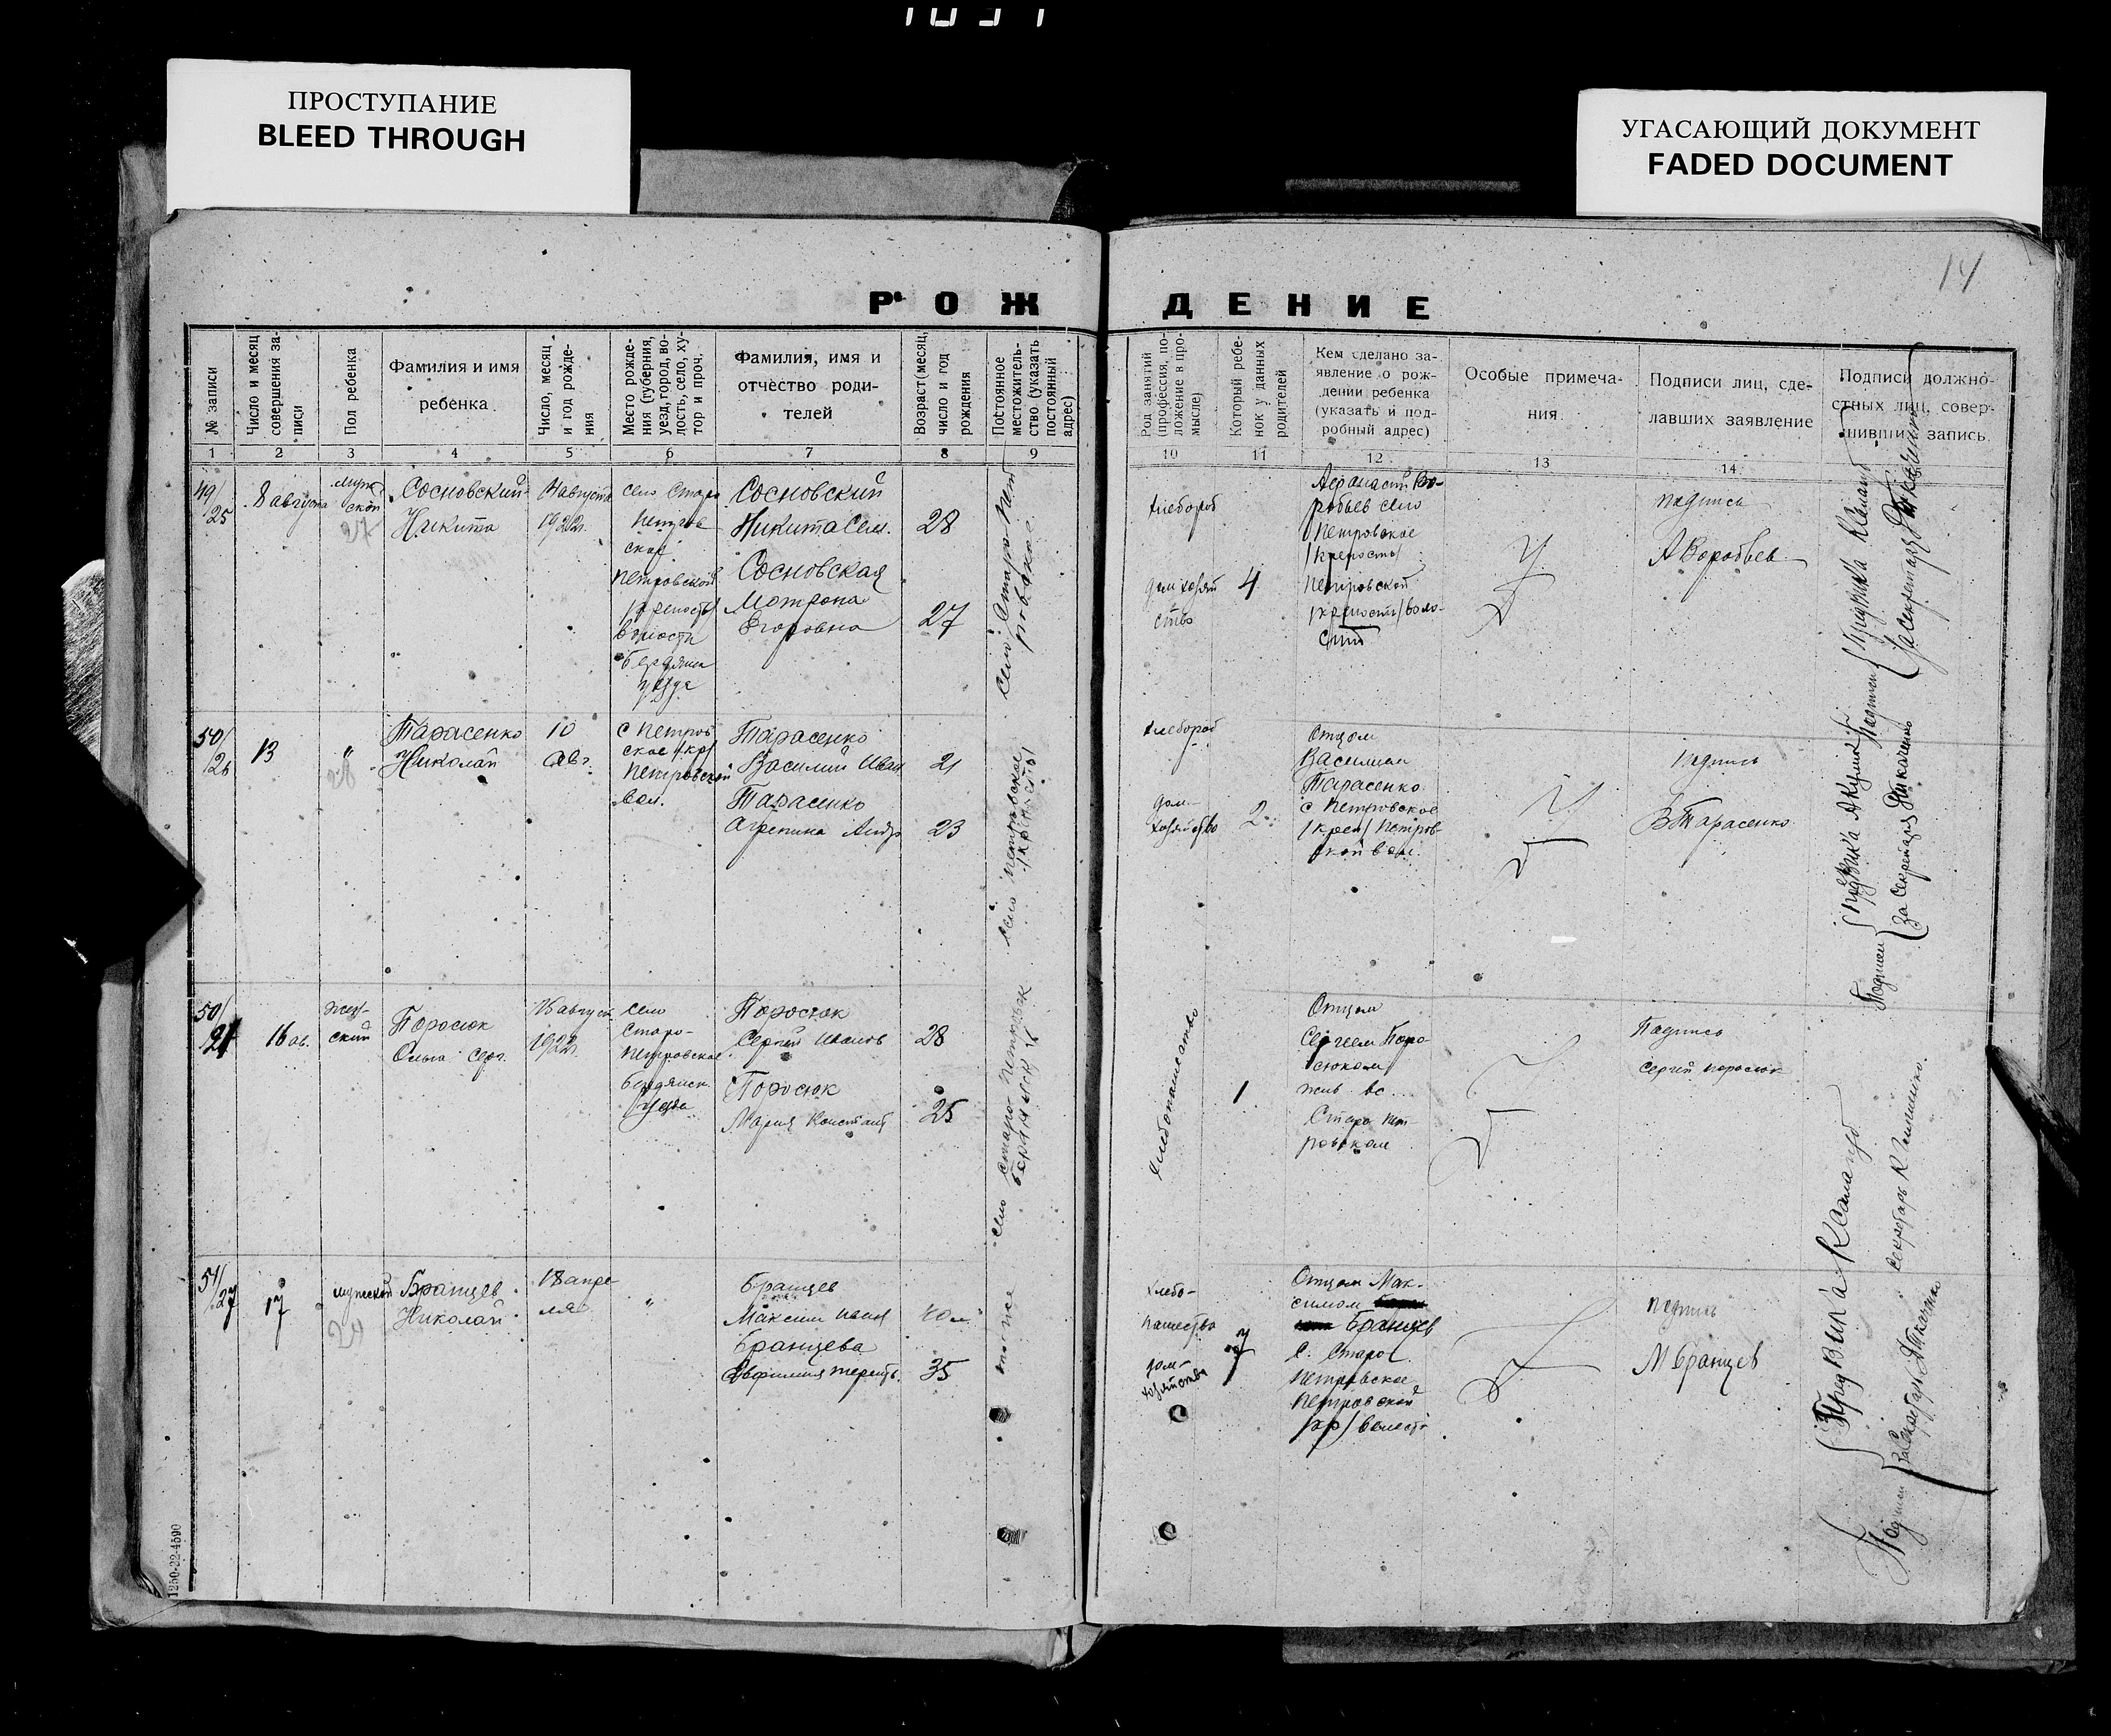 ПРОСТУПАНИЕ
BLEED THROUGH
УГАСАЮЩИЙ ДОКУМЕНТ
FADED DOCUMENT
14
РОЖДЕНИЕ
№ записи
Число и месяц
совершения за-
писи
Пол ребенка
Фамилия и имя
ребенка
Число, месяц
и год рожде-
ния
Место рожде-
ния (губерния,
уезд, город, во-
лость, село, ху-
тор и проч.
Фамилия, имя и
отчество роди-
телей
Возраст (месяц,
число и год
рождения
Постоянное
местожитель-
ство (указать
постоянный
адрес)
Род занятий
(профессия, по-
ложение в про-
мысле)
Который ребе-
нок у данных
родителей
Кем сделано за-
явление о рож-
дении ребенка
(указать и под-
робный адрес)
Особые примеча-
ния.
Подписи лиц, сде-
лавших заявление
Подписи должно-
стных лиц, совер-
шивших запись
1 2 3 4 5 6 7 8 9 10 11 12 13 14
49/25
8 августа
27
Сосновский
Никита
4 августа
1922г.
село Старо
Петров
ское
Петровской
/крепость/
волости
Бердянск
уезда
Сосновский
Никита Сем.
28
Сосновская
Мотрона
Егоровна
27
село Старо-Пет
ровское
хлебороб
дом хозяй
ство
4
Афанасий Во-
робьев село
Петровское
/крепость/
Петровской
/крепость/ воло-
сти
подпись
А Воробьев
50/26
13
"
28
Тарасенко
Николай
10
авг.
с Петров
ское /кр/
Петровской
вол.
Тарасенко
Василий Иван
21
Тарасенко
Агрепина Андр
23
село Петровское
/крепость/
хлебороб
дом-
хозяйство
2
Отцом
Василием
Тарасенко
с Петровское
/креп/ Петров
ской вол.
подпись
В Тарасенко
50/
16 ав.
жен-
ский
Поросюк
Ольга Серг.
15 август
1922г.
село
Старо-
Петровское
Бердянск.
уезда
Поросюк
Сергей Иванов
28
Поросюк
Мария Констант
25
село Старо-Петровск
Хлебопашество
1
Отцом
Сергеем Поро-
сюком
жив. в с.
Старо Пет-
ровском
Подпись
Сергей Поросюк
51/27
17
мужской
29
Бранцев
Николай
18 апре-
ля
"
Бранцев
Максим Иван
40 л
Бранцева
Евфимия Терент.
35
то же
хлебо-
пашество
дом-
хозяйство
7
Отцом Мак-
симом
Бранцев
С. Старо
Петровское
Петровской
/кр/ волости
подпись
М Бранцев
Секретарь
1250-22-4590